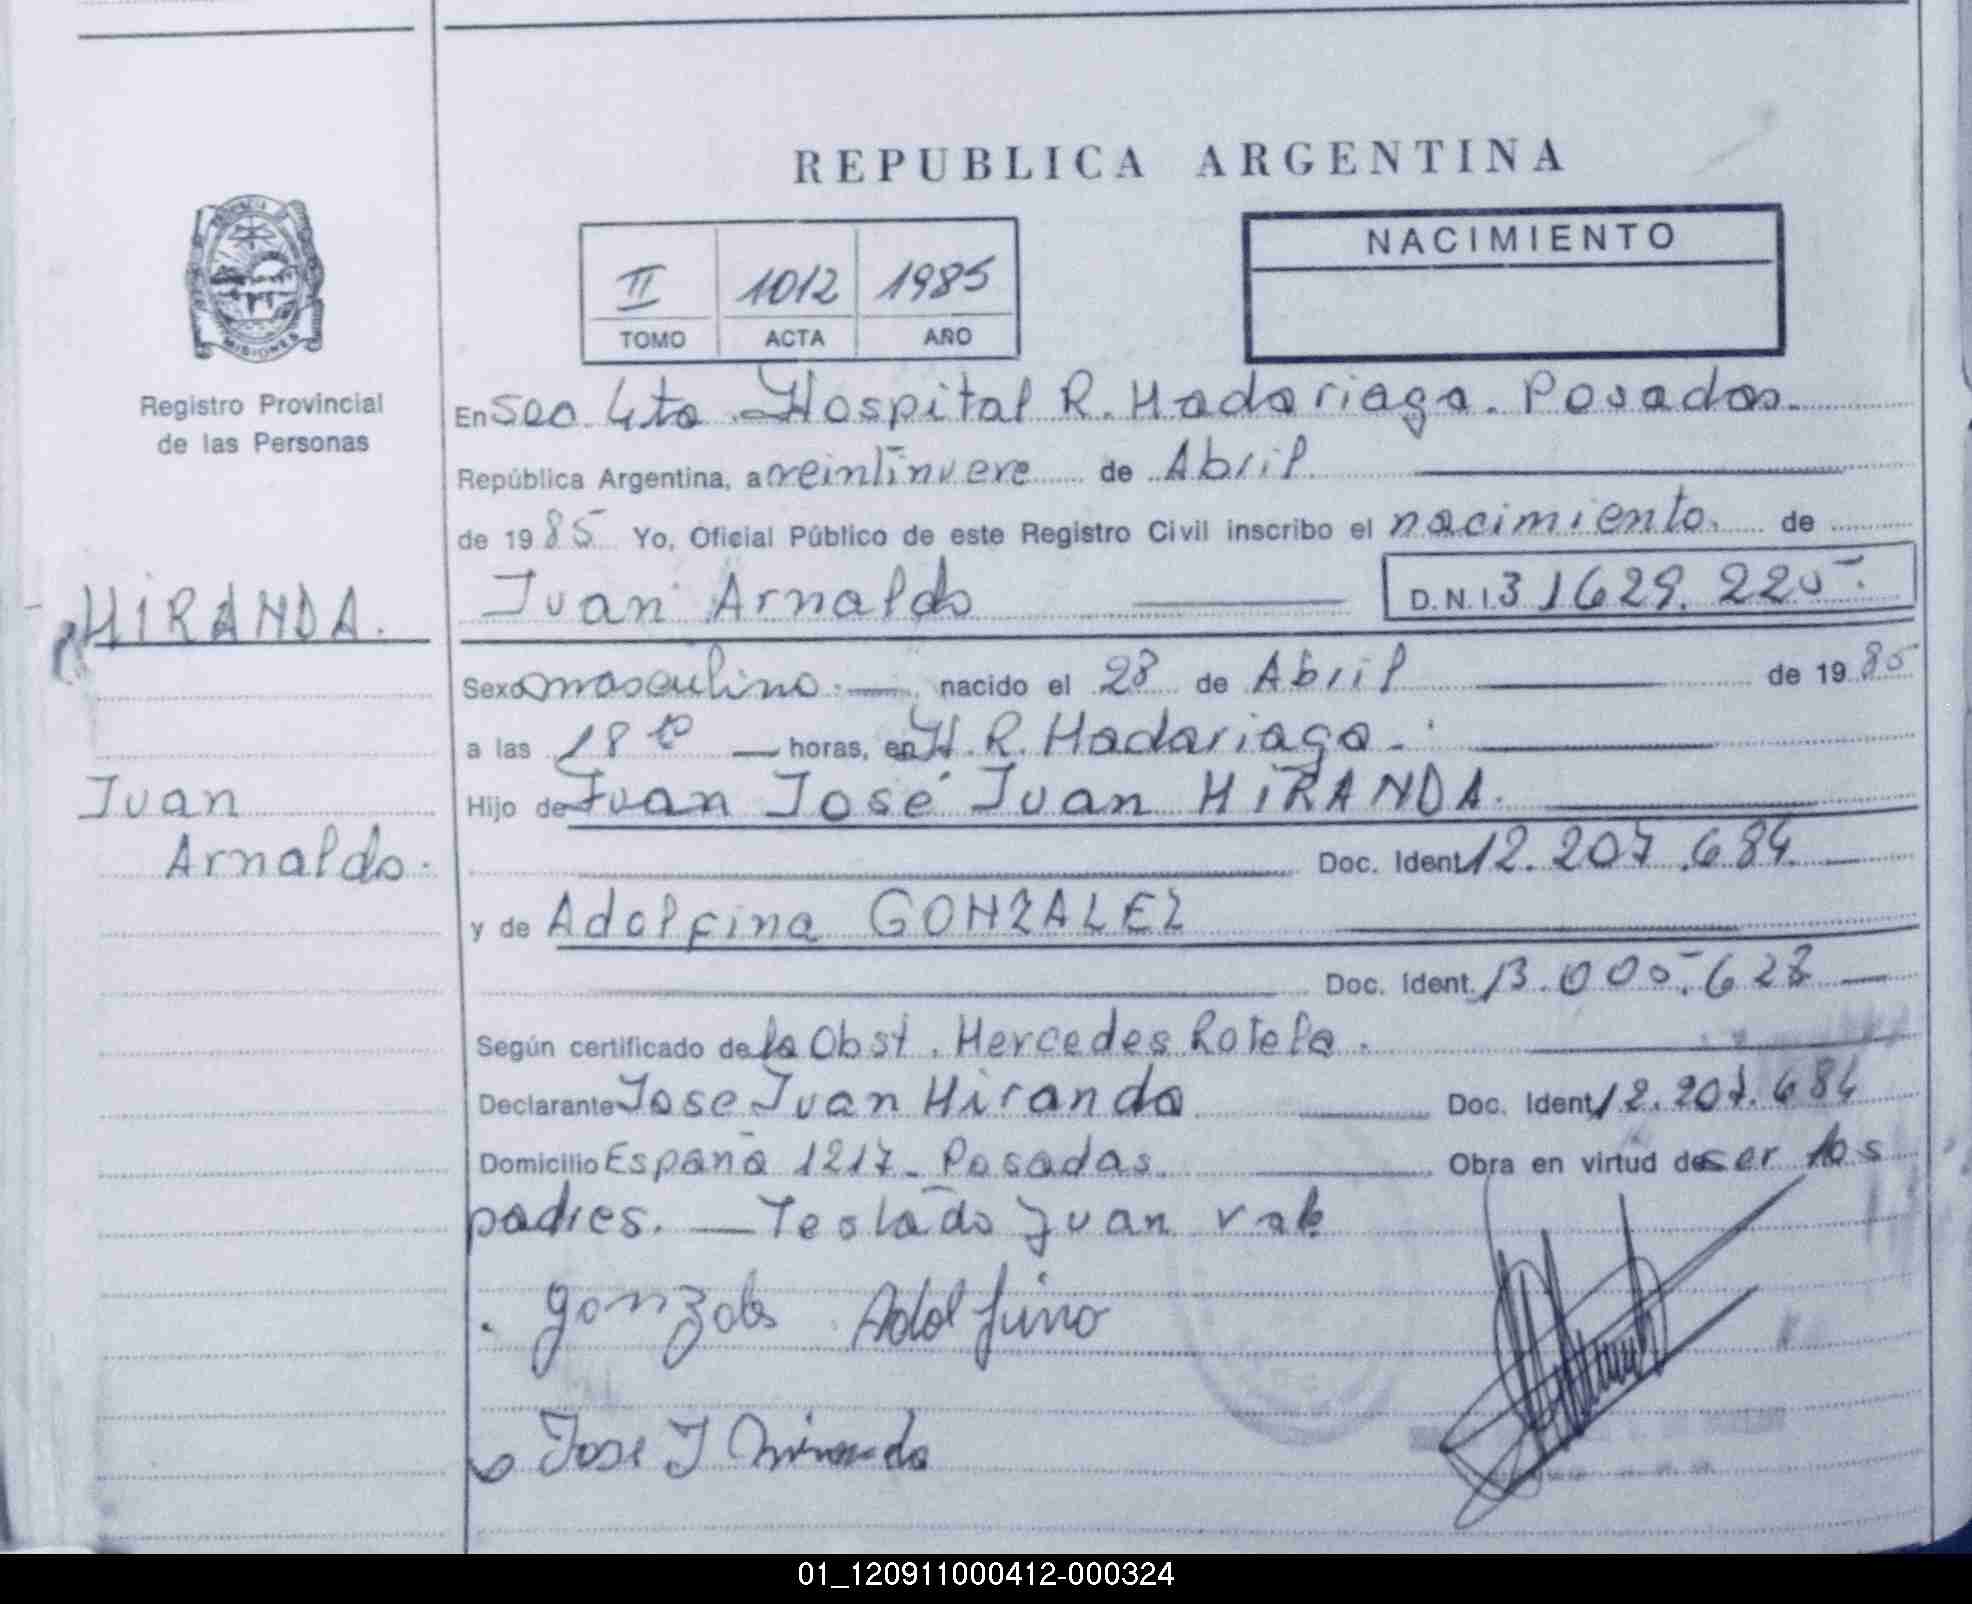 REPUBLICA ARGENTINA
NACIMIENTO
II 1012 1985
TOMO ACTA AÑO
PROVINCIA DE
MISIONES
Registro Provincial
de las Personas
En Sec. 4ta. Hospital R. Madariaga. Posadas.
República Argentina, a veintinueve de Abril
de 1985 Yo, Oficial Público de este Registro Civil inscribo el nacimiento. de
Juan Arnaldo D.N.I. 31629.225.
MIRANDA.
Sexo masculino. nacido el 28 de Abril de 1985
a las 18 horas, en H. R. Madariaga.
Juan
Arnaldo.
Hijo de Juan José Juan MIRANDA.
Doc. Ident. 12.207.684
y de Adolfina GONZALEZ
Doc. Ident. 13.005.628
Según certificado de la Obst. Mercedes Rotela.
Declarante Jose Juan Miranda Doc. Ident. 12.207.684
Domicilio España 1217. Posadas. Obra en virtud de ser los
padres. — Testado Juan vale
Adolfina
Jose J Miranda
01_120911000412-000324